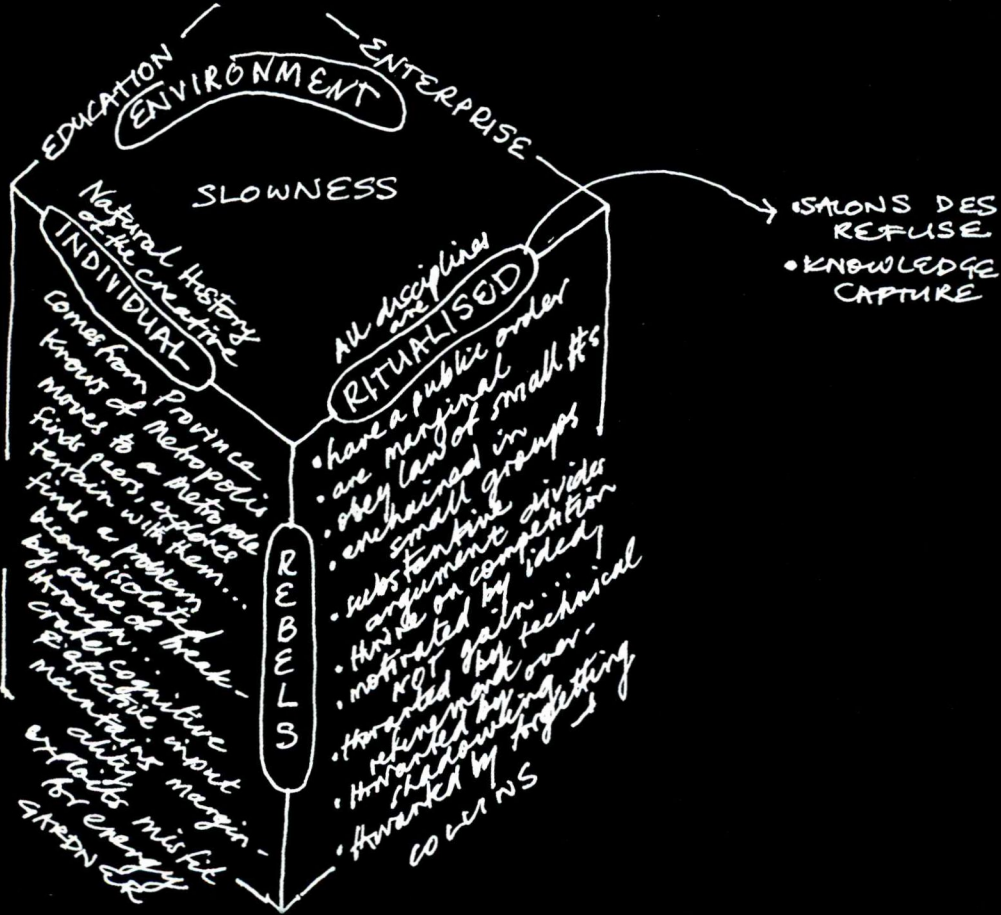 EDUCATION
ENTERPRISE
ENVIRONMENT
SLOWNESS
Natural History
of the creative
INDIVIDUAL
comes from Province
knows of Metropolis
moves to a Metropole
finds peers, explores
terrain with them...
finds a problem
becomes isolated
by sense of break-
through...
craves cognitive
& affective input
maintains margin-
ality
exploits misfit
for energy
GARDNER
REBELS
All disciplines
are
RITUALISED
• have a public order
• are marginal
• obey law of small #s
• enchained in
small groups
• substantive
argument divides
• thrive on competition
• motivated by ideas,
NOT gain...
• thwarted by technical
refinement
• thwarted by over-
shadowing
• thwarted by forgetting
COLLINS
• SALONS DES
REFUSE
• KNOWLEDGE
CAPTURE